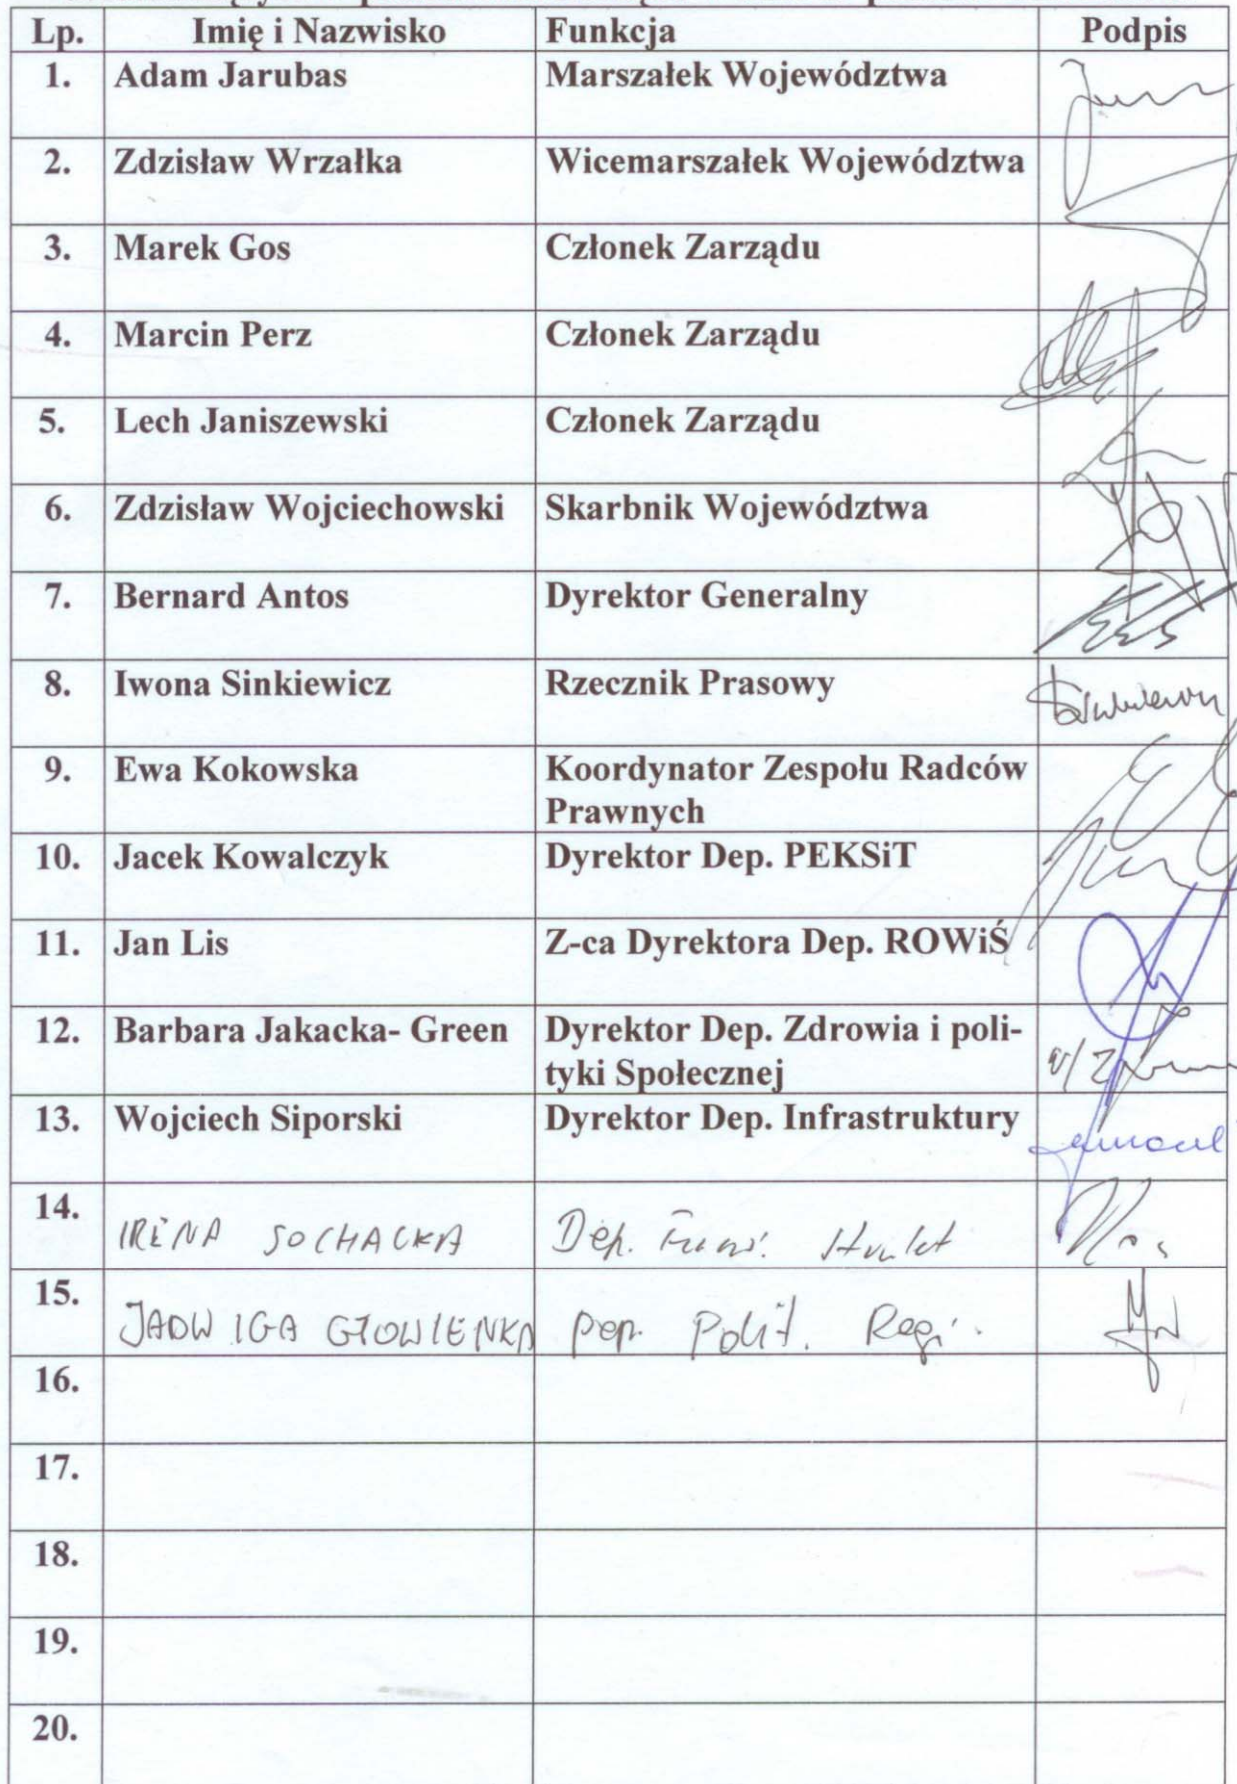 Lp. Imię i Nazwisko Funkcja Podpis
1. Adam Jarubas Marszałek Województwa
2. Zdzisław Wrzałka Wicemarszałek Województwa
3. Marek Gos Członek Zarządu
4. Marcin Perz Członek Zarządu
5. Lech Janiszewski Członek Zarządu
6. Zdzisław Wojciechowski Skarbnik Województwa
7. Bernard Antos Dyrektor Generalny
8. Iwona Sinkiewicz Rzecznik Prasowy
9. Ewa Kokowska Koordynator Zespołu Radców
Prawnych
10. Jacek Kowalczyk Dyrektor Dep. PEKSiT
11. Jan Lis Z-ca Dyrektora Dep. ROWiŚ
12. Barbara Jakacka- Green Dyrektor Dep. Zdrowia i poli-
tyki Społecznej
13. Wojciech Siporski Dyrektor Dep. Infrastruktury
14. IRENA SOCHACKA Dep.
15. JADWIGA GŁOWIENKA Dep. Polit. Regi.
16.
17.
18.
19.
20.